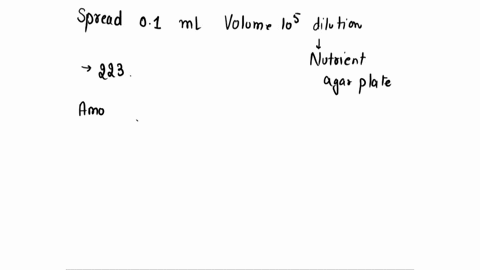 Spread 0.1 ml Volume 10⁵ dilution
↓
Nutrient
agar plate
→ 223.
Amo